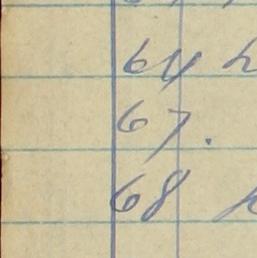 64
67.
68